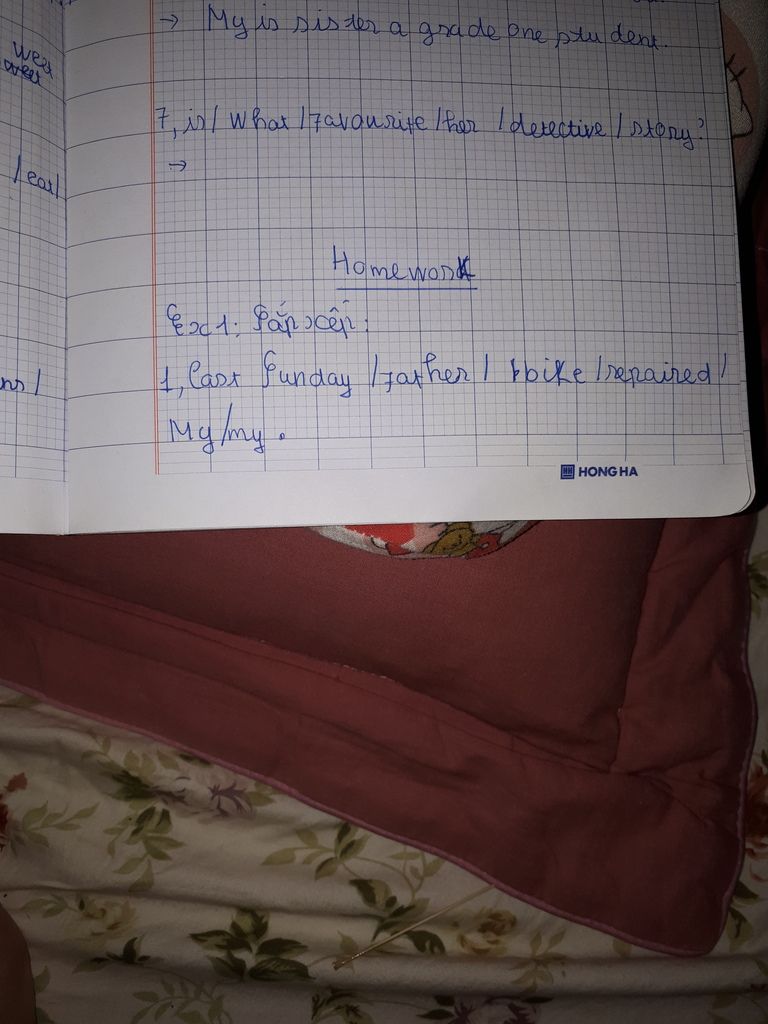 weet
oreet
/eat/
ns/
→ My is sister a grade one student.
7, is/ What /favourite /her /detective / story?
→
Homework
Ex1: Sắp xếp:
1, Last Sunday /father / bike /repaired/
My/my.
HONG HA